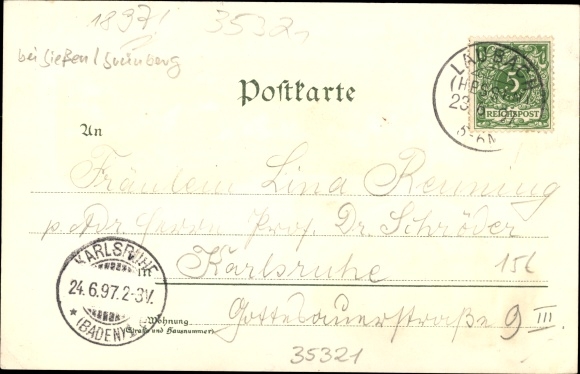 1897! 35321
bei Gießen / Grünberg
Postkarte
LAUBACH
(HESSEN)
23
5
REICHSPOST
An
Fräulein Lina Renning
p. Adr. Herrn Prof. Dr. Schröder
Karlsruhe
156
KARLSRUHE
24.6.97.2-3V.
* (BADEN)
Gottesauerstraße 9 III.
Wohnung
(Straße und Hausnummer)
35321